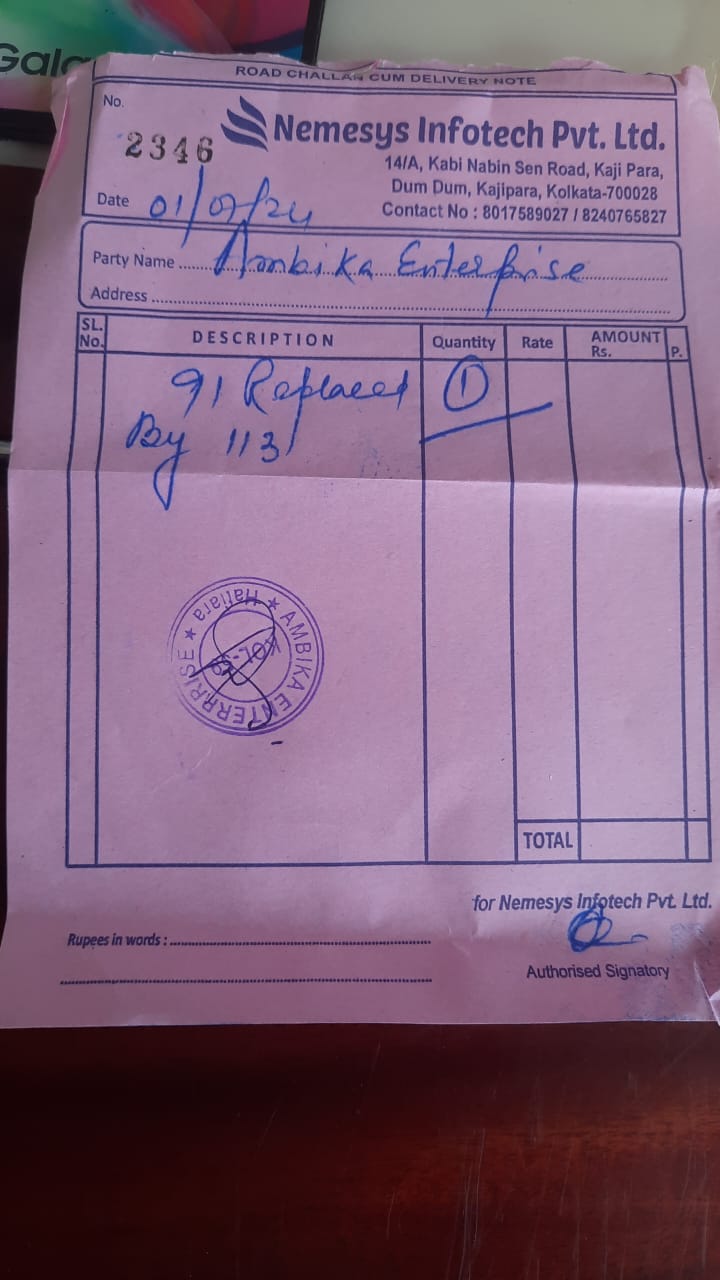 Gala
ROAD CHALLAN CUM DELIVERY NOTE
No.
2346
Nemesys Infotech Pvt. Ltd.
14/A, Kabi Nabin Sen Road, Kaji Para,
Dum Dum, Kajipara, Kolkata-700028
Contact No : 8017589027 / 8240765827
Date 01/07/24
Party Name Ambika Enterprise
Address
SL. No. DESCRIPTION Quantity Rate AMOUNT Rs. P.
91 Replaced 1
By 113
AMBIKA ENTERRRISE ★ Hatiara ★
KOL-
TOTAL
for Nemesys Infotech Pvt. Ltd.
Rupees in words :
Authorised Signatory